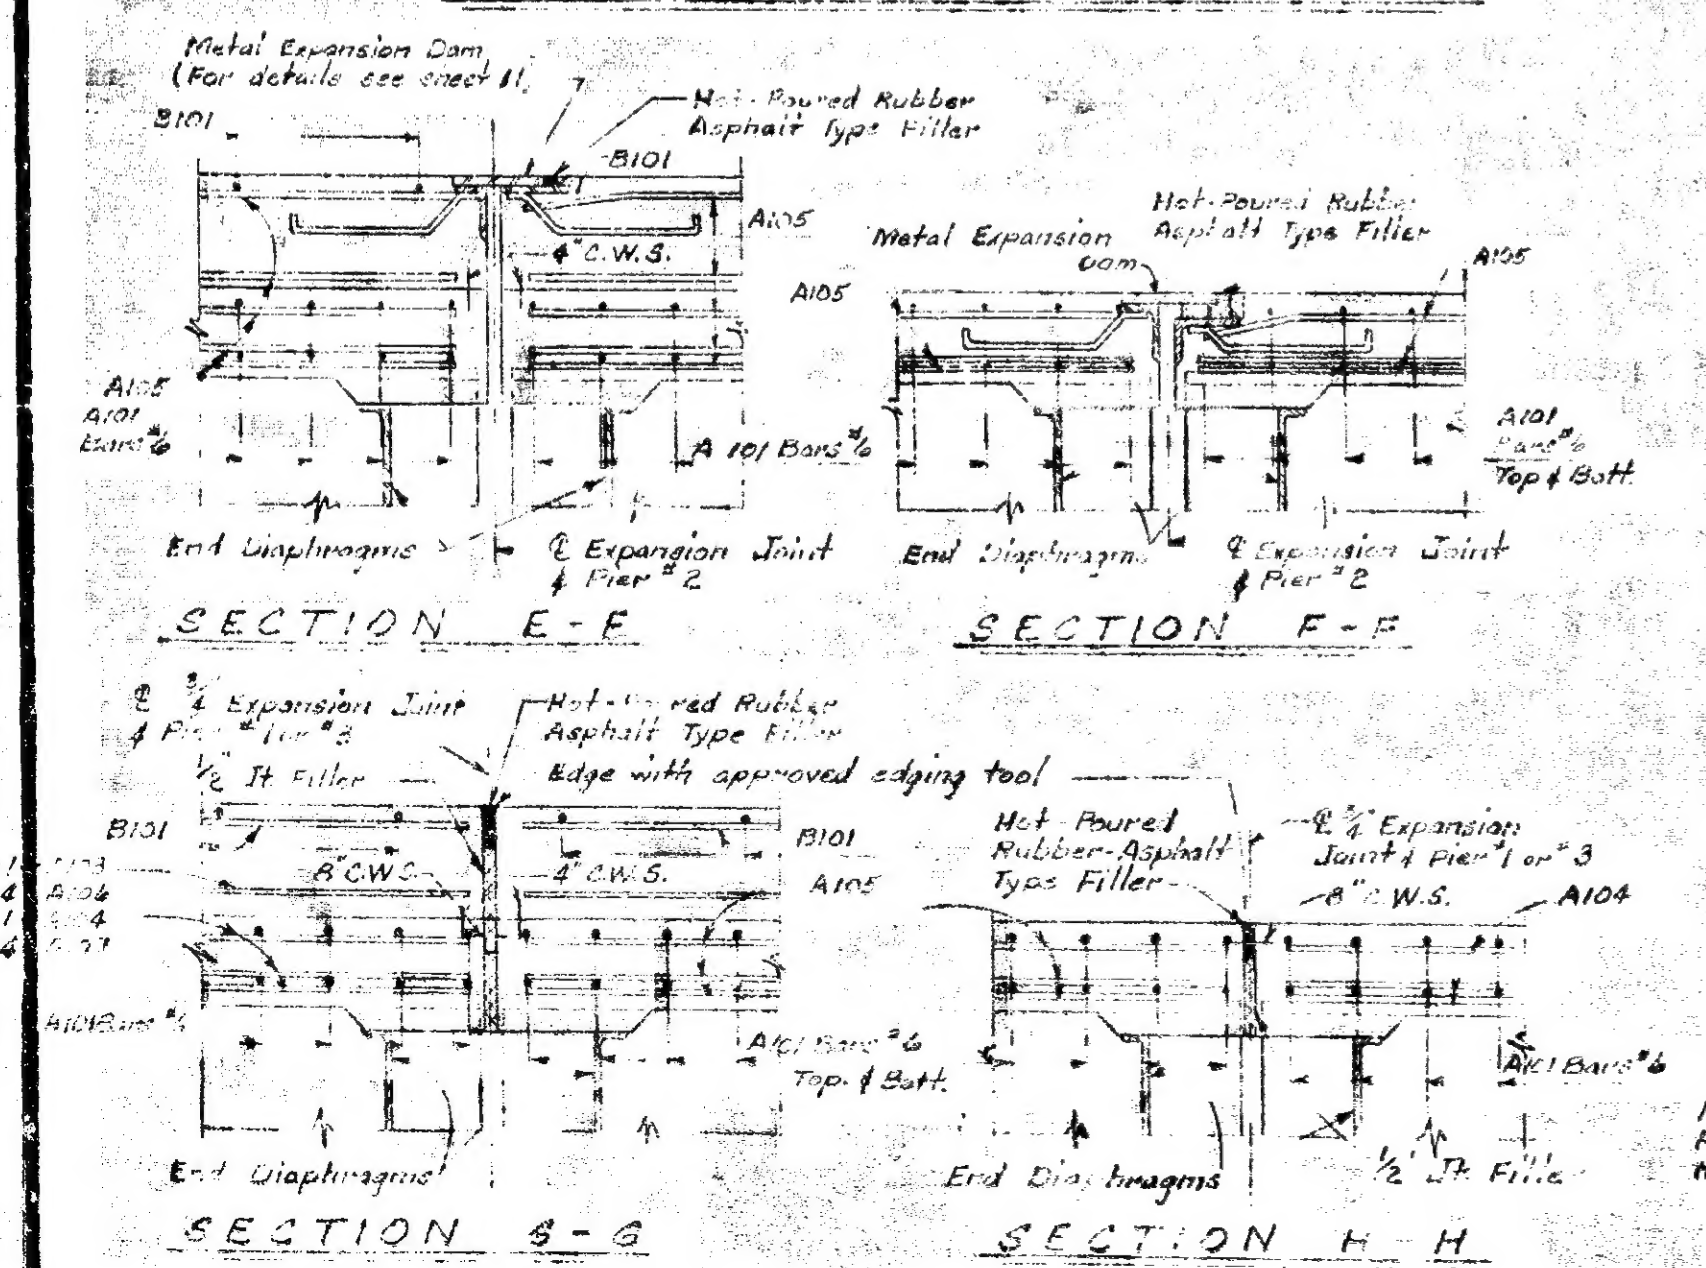 Metal Expansion Dam
(For details see sheet 11)
B101
Hot-Poured Rubber
Asphalt Type Filler
B101
A105
4" C.W.S.
A105
A101
Bars #6
A 101 Bars #6
End Diaphragms
℄ Expansion Joint
& Pier #2
SECTION E-E
Hot-Poured Rubber
Asphalt Type Filler
Metal Expansion
Dam
A105
A105
A101
Bars #6
Top & Bott.
End Diaphragms
℄ Expansion Joint
& Pier #2
SECTION F-F
℄ 3/4" Expansion Joint
& Pier #1 or #3
1/2" Jt Filler
Hot-Poured Rubber
Asphalt Type Filler
Edge with approved edging tool
B101
8" C.W.S.
4" C.W.S.
B101
A105
4 A106
A101 Bars #6
A101 Bars #6
Top. & Bott.
End Diaphragms
SECTION G-G
Hot Poured
Rubber-Asphalt
Type Filler
℄ 3/4" Expansion
Joint & Pier #1 or #3
8" C.W.S.
A104
A101 Bars #6
End Diaphragms
1/2" Jt. Filler
SECTION H-H